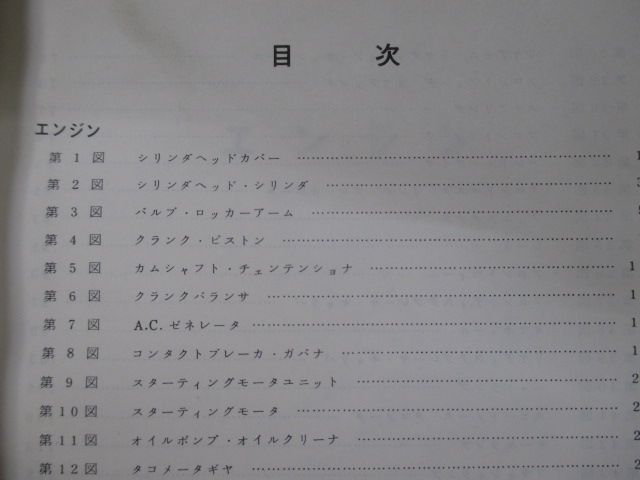 目 次
エンジン
第 1 図 シリンダヘッドカバー ………………………… 1
第 2 図 シリンダヘッド・シリンダ ………………………… 3
第 3 図 バルブ・ロッカーアーム …………………………
第 4 図 クランク・ピストン …………………………
第 5 図 カムシャフト・チェンテンショナ ………………………… 1
第 6 図 クランクバランサ ………………………… 1
第 7 図 A.C. ゼネレータ ………………………… 1
第 8 図 コンタクトブレーカ・ガバナ ………………………… 1
第 9 図 スターティングモータユニット ………………………… 2
第10図 スターティングモータ ………………………… 2
第11図 オイルポンプ・オイルクリーナ ………………………… 2
第12図 タコメータギヤ ………………………… 2